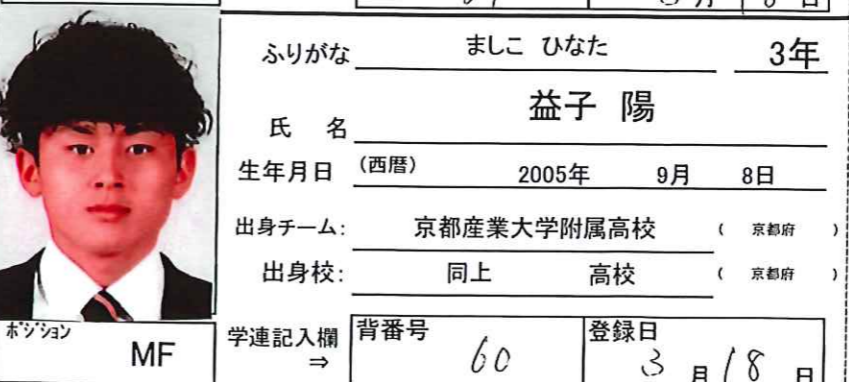 月 18 日
ふりがな ましこ ひなた 3年
氏 名 益子 陽
生年月日 (西暦) 2005年 9月 8日
出身チーム: 京都産業大学附属高校 ( 京都府 )
出身校: 同上 高校 ( 京都府 )
ポジション MF
学連記入欄 ⇒ 背番号 60 登録日 3月18日